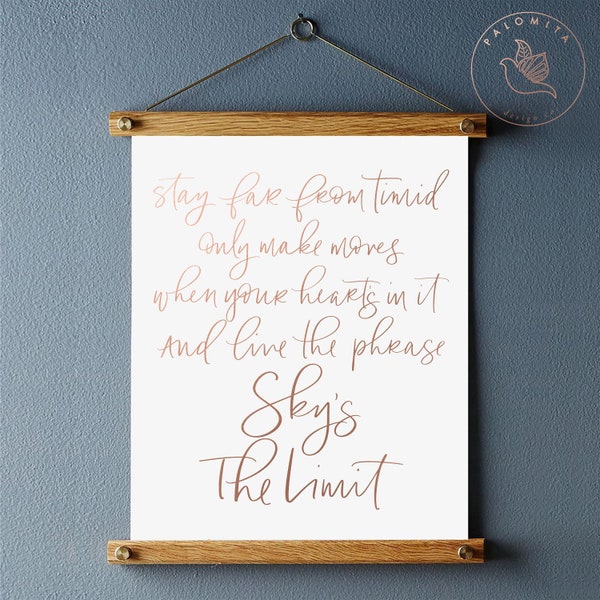 PALOMITA
stay far from timid
only make moves
when your heart's in it
And live the phrase
Sky's
The Limit